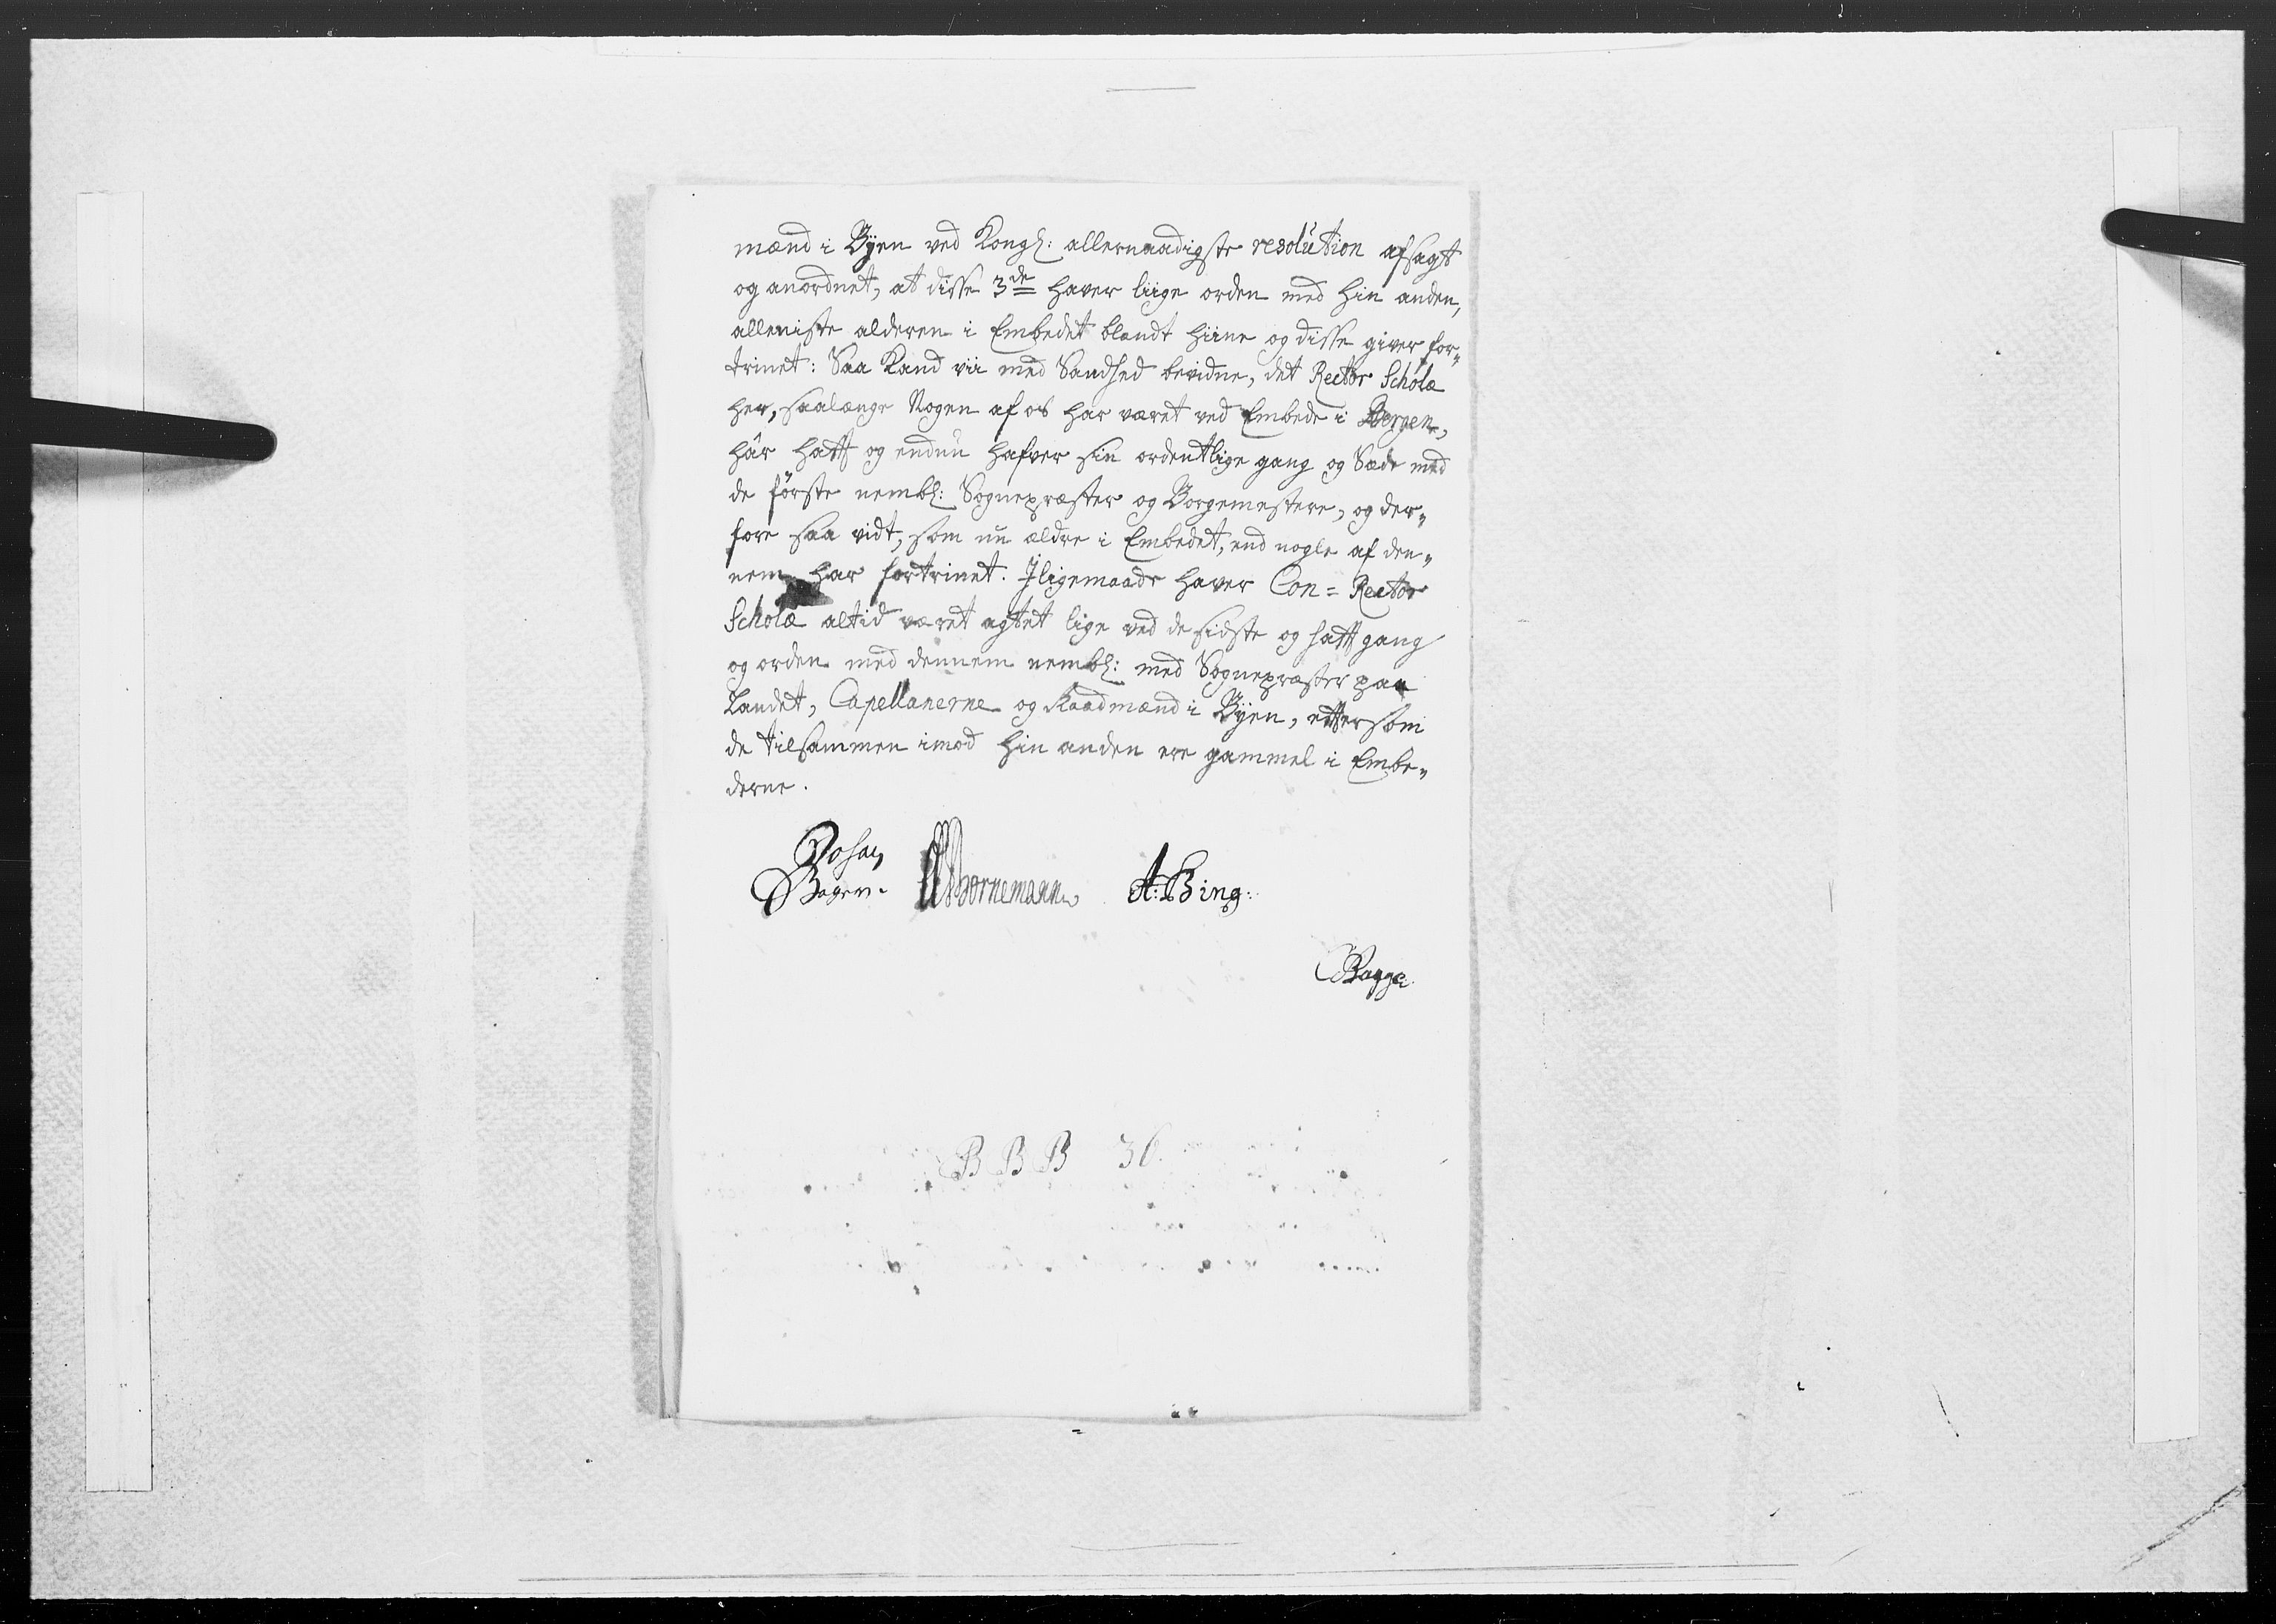 mænd i Byen ved Kongl: allernaadigste resolution afsagt
og anordnet, at disse 3de haver liige orden med hin anden,
alleniste alderen i Embedet blandt hiine og disse giver for„
trinet: Saa Kand vii med Sandhed bevidne, det Rector Scholæ
her, saalænge Nogen af os har været ved Embede i Bergen,
hâr hafft og endnu hafver sin ordentlige gang og Sæde med
de förste nembl: Sognepræster og Borgemestere, og der„
fore saa vidt, som nu ældre i Embedet, end nogle af den„
nem har fortrinet. Iligemaade haver Con = Rector
Scholæ altid været agtet lige ved de sidste og hafft gang
og orden med dennem nembl: med Sognepræster paa
Landet, Capellanerne og Raadmænd i Byen, efftersom
de tilsammen imod hin anden ere gammel i Embe„
derne.
Bornemann A: Bing:
Bagge
B B B 36.